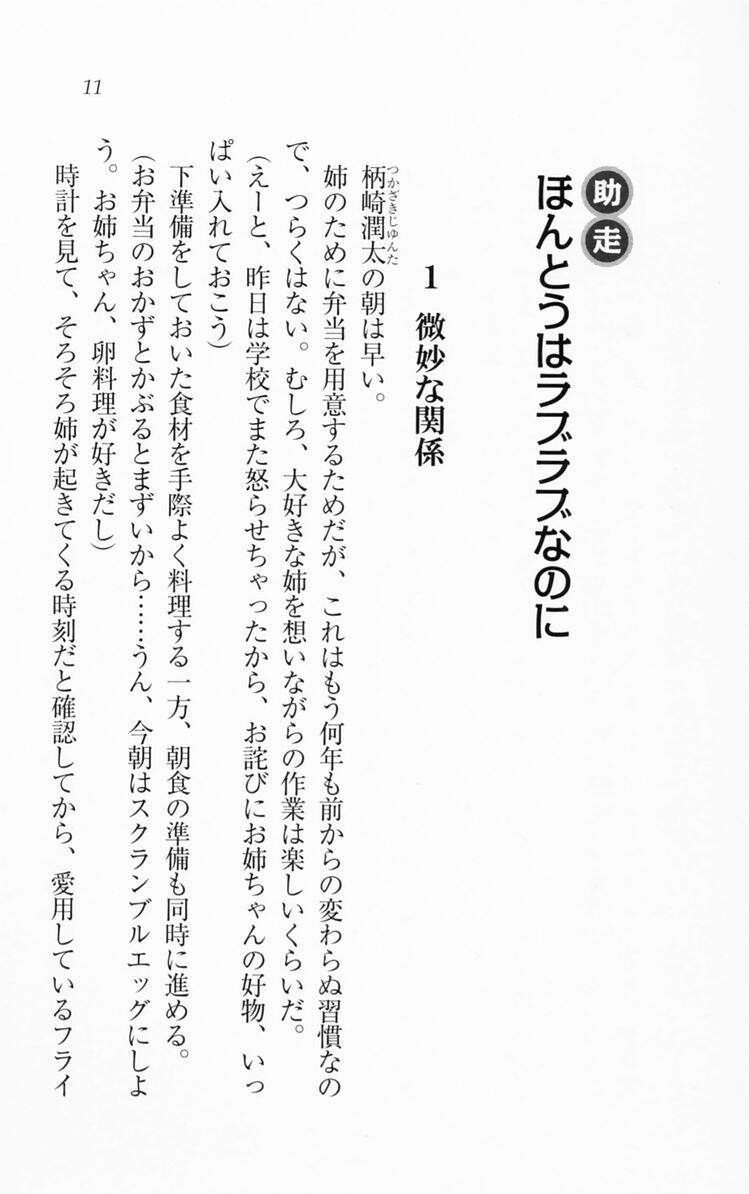 助走
ほんとうはラブラブなのに
1 微妙な関係
つかざきじゅんた
柄崎潤太の朝は早い。
姉のために弁当を用意するためだが、これはもう何年も前からの変わらぬ習慣なの
で、つらくはない。むしろ、大好きな姉を想いながらの作業は楽しいくらいだ。
（えーと、昨日は学校でまた怒らせちゃったから、お詫びにお姉ちゃんの好物、いっ
ぱい入れておこう）
下準備をしておいた食材を手際よく料理する一方、朝食の準備も同時に進める。
（お弁当のおかずとかぶるとまずいから……うん、今朝はスクランブルエッグにしよ
う。お姉ちゃん、卵料理が好きだし）
時計を見て、そろそろ姉が起きてくる時刻だと確認してから、愛用しているフライ
11